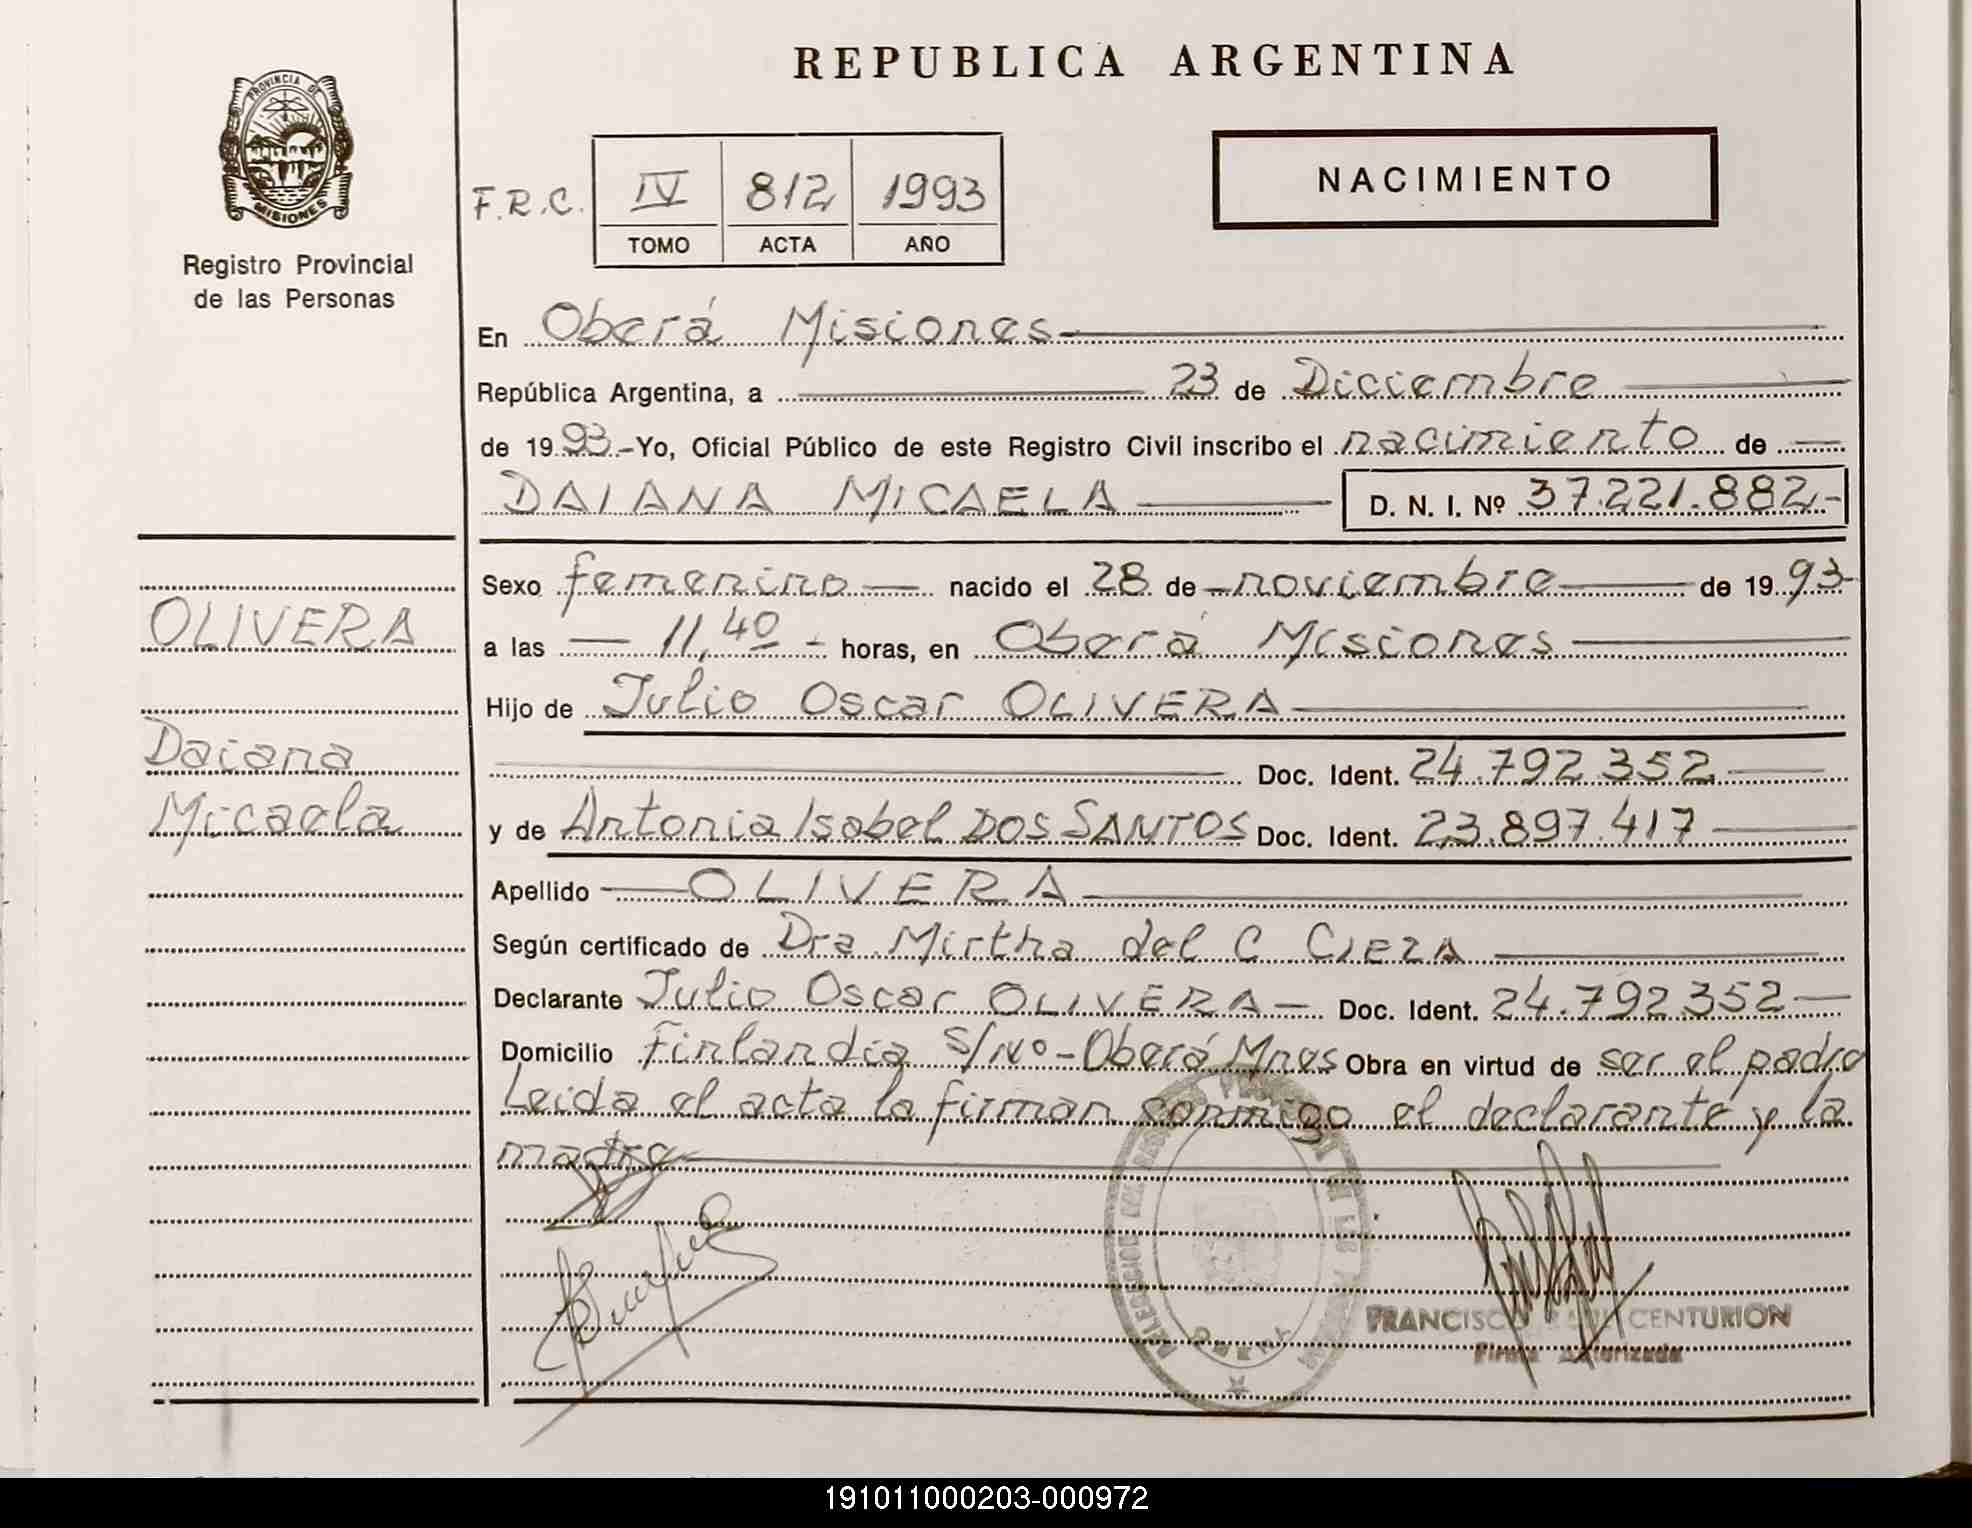 REPUBLICA ARGENTINA
PROVINCIA DE
MISIONES
Registro Provincial
de las Personas
F.R.C. IV 812 1993
TOMO ACTA AÑO
NACIMIENTO
En Oberá Misiones
República Argentina, a 23 de Diciembre
de 1993.-Yo, Oficial Público de este Registro Civil inscribo el nacimiento de
DAIANA MICAELA D. N. I. Nº 37.221.882.-
Sexo femenino nacido el 28 de noviembre de 1993
a las 11,40 horas, en Oberá Misiones
Hijo de Julio Oscar OLIVERA
Doc. Ident. 24.792.352
y de Antonia Isabel DOS SANTOS Doc. Ident. 23.897.417
Apellido OLIVERA
Según certificado de Dra. Mirtha del C CIEZA
Declarante Julio Oscar OLIVERA Doc. Ident. 24.792.352
Domicilio Finlandia S/Nº-Oberá Mnes Obra en virtud de ser el padre
Leida el acta la firman conmigo el declarante y la
madre
OLIVERA
Daiana
Micaela
FRANCISCO CENTURION
Firma Autorizada
191011000203-000972